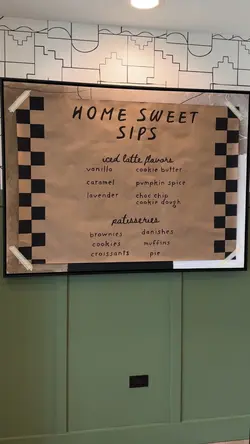 HOME SWEET
SIPS
iced latte flavors
vanilla cookie butter
caramel pumpkin spice
lavender choc chip
cookie dough
patisseries
brownies danishes
cookies muffins
croissants pie